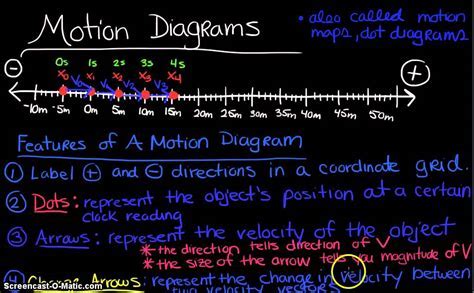 Motion Diagrams
• also called motion
maps, dot diagrams
0s 1s 2s 3s 4s
X₀ X₁ X₂ X₃ X₄
⊖ ⊕
-10m -5m 0m 5m 10m 15m 20m 25m 30m 35m 40m 45m 50m
Features of A Motion Diagram
① Label ⊕ and ⊖ directions in a coordinate grid.
② Dots: represent the object's position at a certain
clock reading
③ Arrows: represent the velocity of the object
* the direction tells direction of V
* the size of the arrow tells you magnitude of V
④ Change Arrows: represent the change in velocity between
velocity vectors
Screencast-O-Matic.com